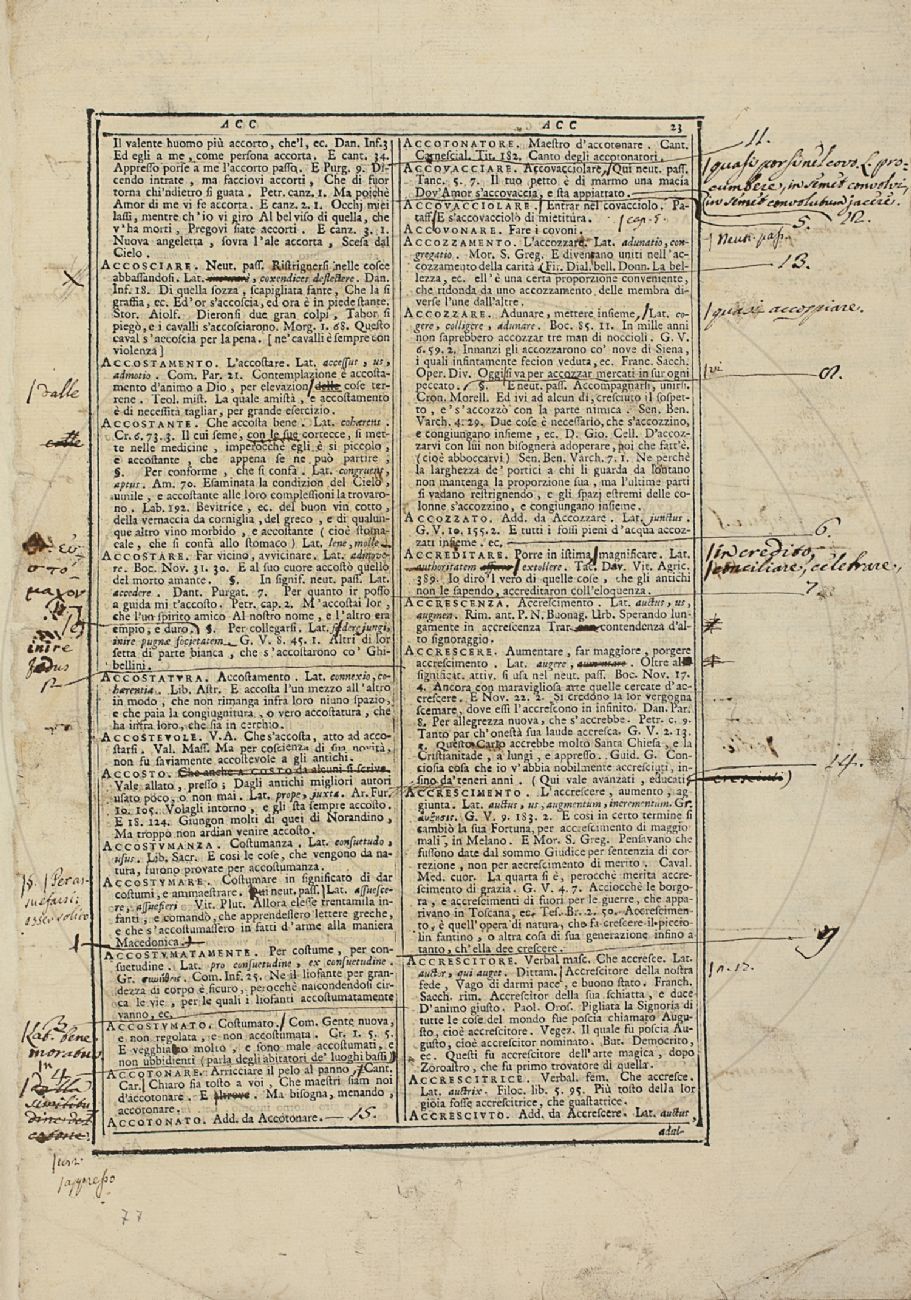 ACC
ACC 23
Il valente huomo più accorto, che'l, ec. Dan. Inf. 3
Ed egli a me, come persona accorta. E cant. 34.
Appresso porse a me l'accorto passo. E Purg. 9. Di-
cendo intrate, ma facciovi accorti, Che di fuor
torna chi 'ndietro si guata. Petr. canz. 1. Ma poichè
Amor di me vi fece accorta. E canz. 2. 1. Occhj miei
lassi, mentre ch'io vi giro Al bel viso di quella, che
v'ha morti, Pregovi siate accorti. E canz. 3. 1.
Nuova angeletta, sovra l'ale accorta, Scesa dal
Cielo.
ACCOSCIARE. Neut. pass. Ristrignersi nelle cosce
abbassandosi. Lat. coxendices deflectere. Dan.
Inf. 18. Di quella sozza, scapigliata fante, Che là si
graffia, ec. Ed' or s'accoscia, ed ora è in piede stante.
Stor. Aiolf. Dieronsi due gran colpi, Tabor si
piegò, e i cavalli s'accosciarono. Morg. 1. 68. Questo
caval s'accoscia per la pena. [ne' cavalli è sempre con
violenza]
ACCOSTAMENTO. L'accostare. Lat. accessus, us,
admotio. Com. Par. 21. Contemplazione è accosta-
mento d'animo a Dio, per elevazion delle cose ter-
rene. Teol. mist. La quale amistà, e accostamento
è di necessità tagliar, per grande esercizio.
ACCOSTANTE. Che accosta bene. Lat. cohærens.
Cr. 6. 73. 3. Il cui seme, con le sue cortecce, si met-
te nelle medicine, imperocchè egli è sì piccolo,
e accostante, che appena se ne può partire.
§. Per conforme, che si confà. Lat. congruens,
aptus. Am. 70. Esaminata la condizion del Cielo,
umile, e accostante alle loro complessioni la trovaro-
no. Lab. 192. Bevitrice, ec. del buon vin cotto,
della vernaccia da corniglia, del greco, e di qualun-
que altro vino morbido, e accostante (cioè stoma-
cale, che si confà allo stomaco) Lat. lene, molle.
ACCOSTARE. Far vicino, avvicinare. Lat. admove-
re. Boc. Nov. 31. 30. E al suo cuore accostò quello
del morto amante. §. In signif. neut. pass. Lat.
accedere. Dant. Purgat. 7. Per quanto ir posso
a guida mi t'accosto. Petr. cap. 2. M'accostai lor,
che l'un spirito amico Al nostro nome, e l'altro era
empio, e duro. §. Per collegarsi. Lat. fœdere jungi,
inire pugnæ societatem. G. V. 8. 45. 1. Altri di lor
setta di parte bianca, che s'accostarono co' Ghi-
bellini.
ACCOSTATVRA. Accostamento. Lat. connexio, co-
hærentia. Lib. Astr. E accosta l'un mezzo all'altro
in modo, che non rimanga infra loro niuno spazio,
e che paia la congiugnitura, o vero accostatura, che
ha infra loro, che sia in cerchio.
ACCOSTEVOLE. V. A. Che s'accosta, atto ad acco-
starsi. Val. Mass. Ma per coscienza di sua novità,
non fu saviamente accostevole a gli antichi.
ACCOSTO. Che anche A COSTO da alcuni si scrive.
Vale allato, presso; Dagli antichi migliori autori
usato poco, o non mai. Lat. prope, juxta. Ar. Fur.
10. 105. Volagli intorno, e gli sta sempre accosto.
E 18. 124. Giungon molti di quei di Norandino,
Ma troppo non ardian venire accosto.
ACCOSTVMANZA. Costumanza. Lat. consuetudo,
usus. Lib. Sacr. E così le cose, che vengono da na-
tura, furono provate per accostumanza.
ACCOSTVMARE. Costumare in significato di dar
costumi, e ammaestrare. Qui neut. pass. Lat. assuesce-
re, assuefieri. Vit. Plut. Allora elesse trentamila in-
fanti, e comandò, che apprendessero lettere greche,
e che s'accostumassero in fatti d'arme alla maniera
Macedonica.
ACCOSTVMATAMENTE. Per costume, per con-
suetudine. Lat. pro consuetudine, ex consuetudine.
Gr. Com. Inf. 25. Ne il liofante per gran-
dezza di corpo è sicuro, perocchè nascondendosi cir-
ca le vie, per le quali i liofanti accostumatamente
vanno, ec.
ACCOSTVMATO. Costumato. Com. Gente nuova,
e non regolata, e non accostumata. Gr. 1. 5. 5.
E vegghiano molto, e sono male accostumati, e
non ubbidienti (parla degli abitatori de' luoghi bassi)
ACCOTONARE. Arricciare il pelo al panno, Cant.
Car. Chiaro sia tosto a voi, Che maestri siam noi
d'accotonare. E altrove. Ma bisogna, menando,
accotonare.
ACCOTONATO. Add. da Accotonare. 15.
ACCOTONATORE. Maestro d'accotonare. Cant.
Carnescial. Tit. 182. Canto degli accotonatori.
ACCOVACCIARE. Accovacciolare, Qui neut. pass.
Tanc. 5. 7. Il tuo petto è di marmo una macia
Dov'Amor s'accovaccia, e sta appiattato.
ACCOVACCIOLARE. Entrar nel covacciolo. Pa-
taff. E s'accovacciolò di mietitura. cap. 5.
ACCOVONARE. Fare i covoni.
ACCOZZAMENTO. L'accozzare. Lat. adunatio, con-
gregatio. Mor. S. Greg. E diventano uniti nell'ac-
cozzamento della carità. Fir. Dial. bell. Donn. La bel-
lezza, ec. ell'è una certa proporzione conveniente,
che ridonda da uno accozzamento delle membra di-
verse l'une dall'altre.
ACCOZZARE. Adunare, mettere insieme, Lat. co-
gere, colligere, adunare. Boc. 85. 11. In mille anni
non saprebbero accozzar tre man di noccioli. G. V.
6. 59. 2. Innanzi gli accozzarono co' nove di Siena,
i quali infintamente fecion veduta, ec. Franc. Sacch.
Oper. Div. Oggi si va per accozzar mercati in sur ogni
peccato. §. E neut. pass. Accompagnarsi, unirsi.
Cron. Morell. Ed ivi ad alcun dì, cresciuto il sospet-
to, e s'accozzò con la parte nimica. Sen. Ben.
Varch. 4. 29. Due cose è necessario, che s'accozzino,
e congiungano insieme, ec. D. Gio. Cell. D'accoz-
zarvi con lui non bisognerà adoperare, poi che fatt'è.
(cioè abboccarvi) Sen. Ben. Varch. 7. 1. Ne perchè
la larghezza de' portici a chi li guarda da lontano
non mantenga la proporzione sua, ma l'ultime parti
si vadano restrignendo, e gli spazj estremi delle co-
lonne s'accozzino, e congiungano insieme.
ACCOZZATO. Add. da Accozzare. Lat. junctus.
G. V. 10. 155. 2. E tutti i fossi pieni d'acqua accoz-
zati insieme. ec.
ACCREDITARE. Porre in istima, magnificare. Lat.
authoritatem extollere. Tac. Dav. Vit. Agric.
389. Io dirò 'l vero di quelle cose, che gli antichi
non le sapendo, accreditaron coll'eloquenza.
ACCRESCENZA. Accrescimento. Lat. auctus, us,
augmen. Rim. ant. P. N. Buonag. Urb. Sperando lun-
gamente in accrescenza Trar contendenza d'al-
to signoraggio.
ACCRESCERE. Aumentare, far maggiore, porgere
accrescimento. Lat. augere, augmentare. Oltre al
significat. attiv. si usa nel neut. pass. Boc. Nov. 17.
4. Ancora con maravigliosa arte quelle cercate d'ac-
crescere. E Nov. 22. 2. Si credono la lor vergogna
scemare, dove essi l'accrescono in infinito. Dan. Par.
8. Per allegrezza nuova, che s'accrebbe. Petr. c. 9.
Tanto par ch'onestà sua laude accresca. G. V. 2. 13.
5. Questo Carlo accrebbe molto Santa Chiesa, e la
Cristianitade, a lungi, e appresso. Guid. G. Con-
ciosia cosa che io v'abbia nobilmente accresciuti, in-
sino da' teneri anni. (Qui vale avanzati, educati
ACCRESCIMENTO. L'accrescere, aumento, ag-
giunta. Lat. auctus, us, augmentum, incrementum. Gr.
G. V. 9. 183. 2. E così in certo termine si
cambiò la sua Fortuna, per accrescimento di maggio
mali, in Melano. E Mor. S. Greg. Pensavano che
fussono date dal sommo Giudice per sentenzia di cor-
rezione, non per accrescimento di merito. Caval.
Med. cuor. La quarta si è, perocchè merita accre-
scimento di grazia. G. V. 4. 7. Acciocchè le borgo-
ra, e accrescimenti di fuori per le guerre, che appa-
rivano in Toscana, ec. Tes. Br. 2. 50. Accrescimen-
to, è quell'opera di natura, che fa crescere il picco-
lin fantino, o altra cosa di sua generazione infino a
tanto, ch'ella dee crescere.
ACCRESCITORE. Verbal masc. Che accresce. Lat.
auctor, qui auget. Dittam. Accrescitore della nostra
fede, Vago di darmi pace, e buono stato. Franch.
Sacch. rim. Accrescitor della sua schiatta, e duce
D'animo giusto. Paol. Oros. Pigliata la Signoria di
tutte le cose del mondo fue poscia chiamato Augu-
sto, cioè accrescitore. Vegez. Il quale fu poscia Au-
gusto, cioè accrescitor nominato. But. Democrito,
ec. Questi fu accrescitore dell'arte magica, dopo
Zoroastro, che fu primo trovatore di quella.
ACCRESCITRICE. Verbal. fem. Che accresce.
Lat. auctrix. Filoc. lib. 5. 95. Più tosto della lor
gioia fosse accrescitrice, che guastatrice.
ACCRESCIVTO. Add. da Accrescere. Lat. auctus,
adul-
11.
quasi porsi nel covo. L. pro-
cumbere, in semet convolvi,
in semet convolutum jacere.
5. 12.
Neut. pass.
13.
quasi accoppiare.
vi
8.
6.
in credito,
conciliare, celebrare,
7.
14.
9
n. 17.
dalle
inire
fœdus
12
Lat. bene
moratus
appresso
77